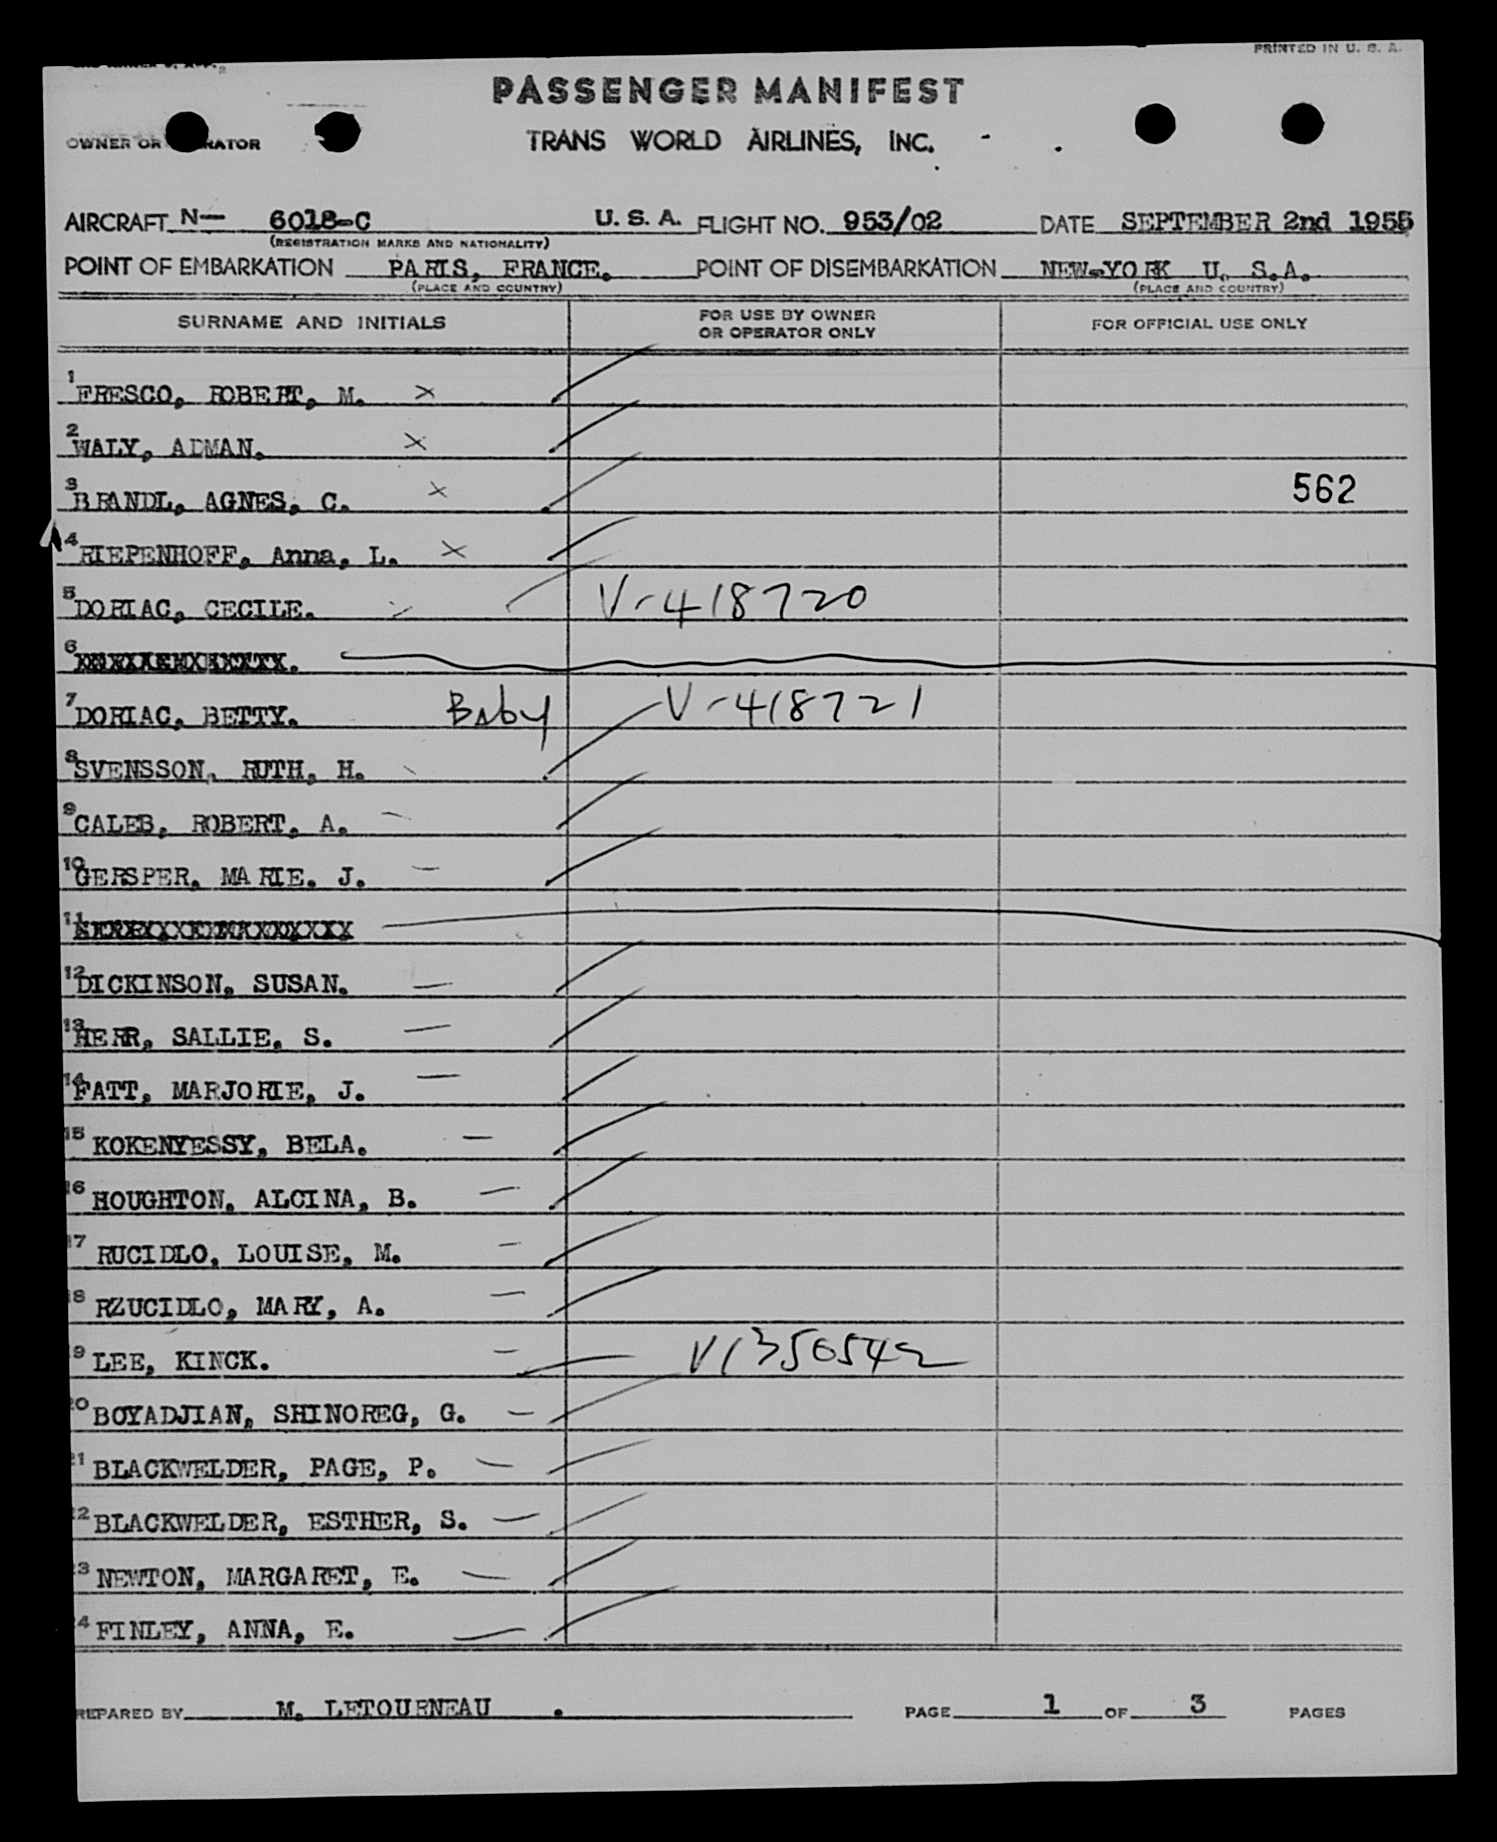 PRINTED IN U. S. A.
PASSENGER MANIFEST
OWNER OR
TRANS WORLD AIRLINES, INC.
AIRCRAFT N— 6018-C U. S. A. FLIGHT NO. 953/02 DATE SEPTEMBER 2nd 1955
(REGISTRATION MARKS AND NATIONALITY)
POINT OF EMBARKATION PARIS, FRANCE. POINT OF DISEMBARKATION NEW-YORK U. S.A.
(PLACE AND COUNTRY) (PLACE AND COUNTRY)
SURNAME AND INITIALS FOR USE BY OWNER OR OPERATOR ONLY FOR OFFICIAL USE ONLY
1 FRESCO, ROBERT, M. X
2 WALY, ADMAN. X
3 BRANDL, AGNES, C. X 562
4 RIEPENHOFF, Anna, L. X
5 DORIAC, CECILE. V-418720
6
7 DORIAC, BETTY. Baby V-418721
8 SVENSSON, RUTH, H.
9 CALEB, ROBERT, A.
10 GERSPER, MARIE. J.
11
12 DICKINSON, SUSAN.
13 HERR, SALLIE, S.
14 FATT, MARJORIE, J.
15 KOKENYESSY, BELA.
16 HOUGHTON, ALCINA, B.
17 RUCIDLO, LOUISE, M.
18 RZUCIDLO, MARY, A.
19 LEE, KINCK. V1356542
20 BOYADJIAN, SHINOREG, G.
21 BLACKWELDER, PAGE, P.
22 BLACKWELDER, ESTHER, S.
23 NEWTON, MARGARET, E.
24 FINLEY, ANNA, E.
PREPARED BY M. LETOURNEAU PAGE 1 OF 3 PAGES